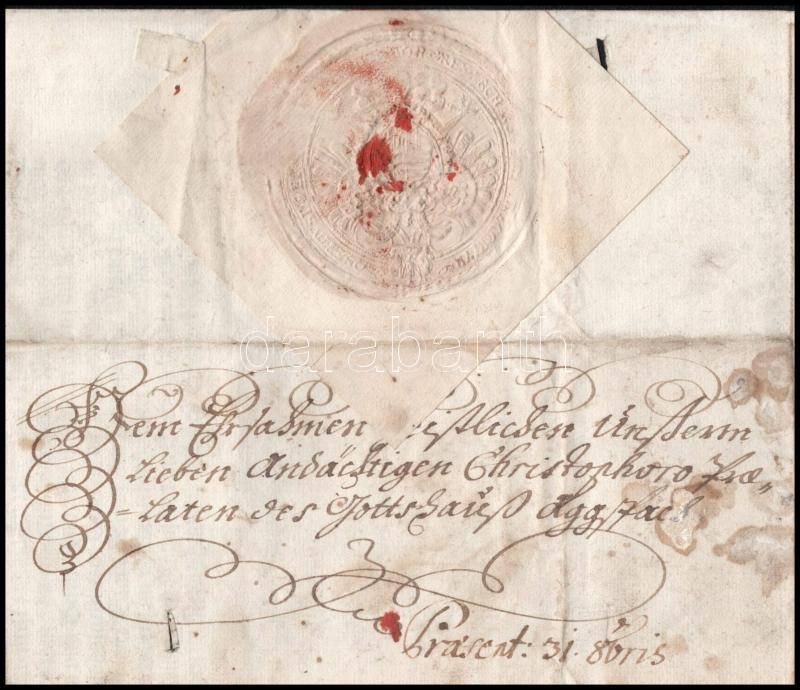 darabanth
Dem Ersahmen Geistlichen Unßerm
lieben Andächtigen Christophoro Præ=
=laten des Gottshauß Aggspach
Præsent: 31. 8bris